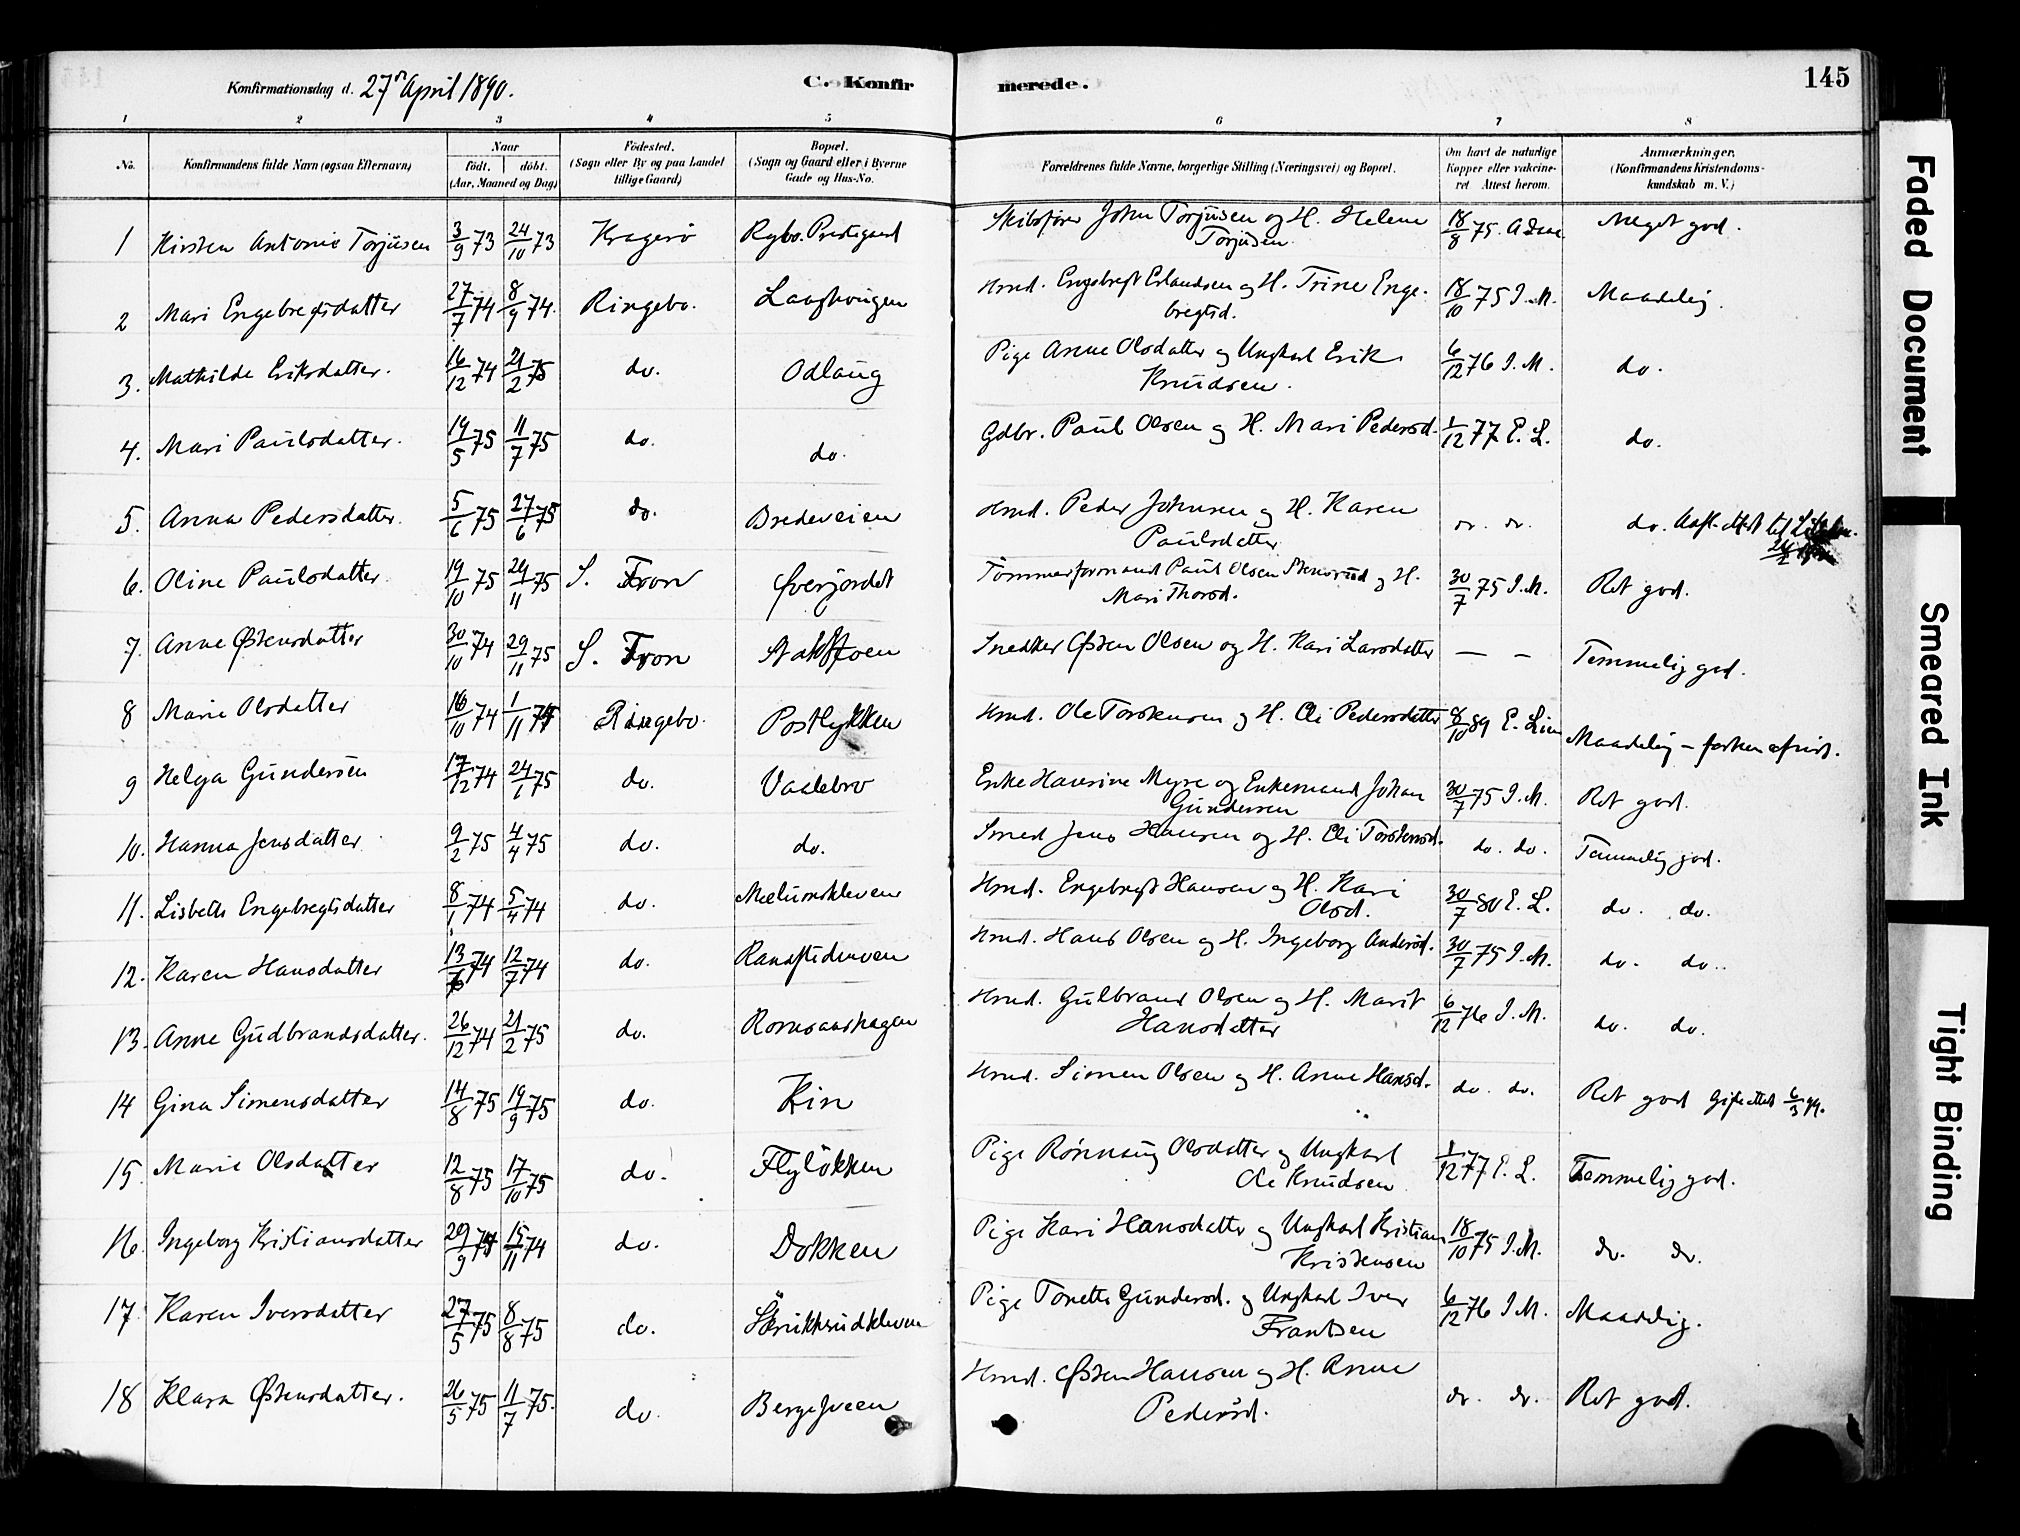 Konfirmationsdag d. 27de April 1890.
C. Konfirmerede.
145
1 2 3 4 5 6 7 8
No.
Konfirmandens fulde Navn (ogsaa Efternavn)
Naar
födt. döbt.
(Aar, Maaned og Dag)
Födested.
(Sogn eller By og paa Landet
tillige Gaard)
Bopæl.
(Sogn og Gaard eller i Byerne
Gade og Hus-No.
Forældrenes fulde Navne, borgerlige Stilling (Næringsvei) og Bopæl.
Om havt de naturlige
Kopper eller vakcine-
ret Attest herom.
Anmærkninger.
(Konfirmandens Kristendoms-
kundskab m. V.)
1 Kirsten Antonie Torjusen 3/9 73 24/10 73 Kragerö Rgbo. Prestegaard Skibsfører John Torjusen og H. Helene Torjusen 18/8 75. Meget god.
2 Mari Engebregtsdatter 27/7 74 8/9 74. Ringebo. Hmd. Engebregt Erlandsen og H. Trine Engebregtsd. 18/10 75 I. M. Maadelig.
3. Mathilde Eriksdatter. 16/12 74 21/2 75 do. Odlaug Pige Anne Olsdatter og Ungkarl Erik Knudsen. 6/12 76 I. M. do.
4. Mari Paulsdatter. 19/5 75 11/7 75 do. do. Gdbr. Paul Olsen og H. Mari Pedersd. 1/12 77 E. L. do.
5. Anna Pedersdatter. 5/6 75 27/6 75 do. Bredeveien Hmd. Peder Johnsen og H. Karen Paulsdatter do. do. do.
6. Oline Paulsdatter. 19/10 75 29/11 75 S. Fron Øverjordet Tømmerformand Paul Olsen Stensrud og H. Mari Thorsd. 30/7 75 I. M. Ret god.
7. Anne Østensdatter 30/10 74 29/11 75 S. Fron Snedker Østen Olsen og H. Kari Larsdatter — — Temmelig god.
8 Marie Olsdatter 16/10 74 1/11 74 Ringebo. Postlykken Hmd. Ole Torstensen og H. Eli Pedersdatter 8/10 89 E. Lien Maadelig
9 Helga Gundersen 17/12 74 24/1 75 do. Vaalebro Enke Haverine Myre og Enkemand Johan Gundersen 30/7 75 I. M. Ret god.
10. Hanna Jensdatter 9/2 75 4/4 75 do. do. Smed Jens Hansen og H. Eli Torstensd. do. do. Temmelig god.
11. Lisbeth Engebregtsdatter 8/1 74 5/4 74 do. Mælumskleven Hmd. Engebregt Hansen og H. Kari Olsd. 30/7 80 E. L. do. do.
12. Karen Hansdatter 13/6 74 12/7 74 do. Hmd. Hans Olsen og H. Ingeborg Andersd. 30/7 75 I. M. do. do.
13. Anne Gudbrandsdatter. 26/12 74 21/2 75 do. Romsaashagen Hmd. Gulbrand Olsen og H. Marit Hansdatter 6/12 76 I. M. do. do.
14 Gina Simensdatter 14/8 75 19/9 75 do. Kin Hmd. Simen Olsen og H. Anne Hansd. do. do. Ret god Gifteattest 6/3 99.
15. Marie Olsdatter 12/8 75 17/10 75 do. Flyløkken Pige Rønnaug Olsdatter og Ungkarl Ole Knudsen 1/12 77 E. L. Temmelig god.
16. Ingeborg Kristiansdatter 29/9 74 15/11 74 do. Dokken Pige Kari Hansdatter og Ungkarl Kristian Kristensen 18/10 75 I. M. do. do.
17. Karen Iversdatter 27/5 75 8/8 75 do. Pige Tonette Gundersd. og Ungkarl Iver Frantsen 6/12 76 I M. Maadelig.
18 Klara Østensdatter. 26/5 75 11/7 75. do. Bergesveen Hmd. Østen Hansen og H. Anne Pedersd. do. do. Ret god.
Faded Document
Smeared Ink
Tight Binding